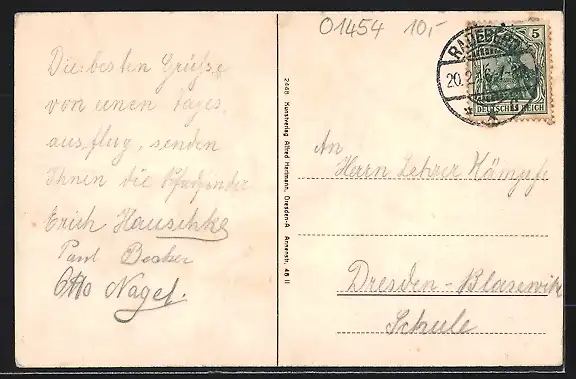 01454 10,-
Die besten Grüße
von einen Tages
ausflug, senden
Ihnen die
Erich Hauschke
Paul Becker
Otto Nagel.
2448 Kunstverlag Alfred Hartmann, Dresden-A Annenstr. 48 II
RADEBERG
20.2.
5
DEUTSCHES REICH
An
Herrn Lehrer Kämpfe
Dresden-Blasewitz
Schule